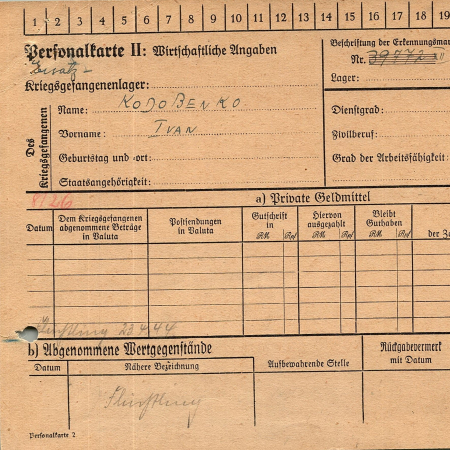 1 2 3 4 5 6 7 8 9 10 11 12 13 14 15 16 17 18 19
Personalkarte II: Wirtschaftliche Angaben
Ersatz-
Kriegsgefangenenlager:
Des Kriegsgefangenen
Name: KODOBENKO
Vorname: IVAN
Geburtstag und -ort:
Staatsangehörigkeit:
Beschriftung der Erkennungsmar
Nr. 39772
Lager:
Dienstgrad:
Zivilberuf:
Grad der Arbeitsfähigkeit:
8126
a) Private Geldmittel
Datum
Dem Kriegsgefangenen
abgenommene Beträge
in Valuta
Postsendungen
in Valuta
Gutschrift
in
RM Rpf
Hiervon
ausgezahlt
RM Rpf
Bleibt
Guthaben
RM Rpf
der Za
23.4.44
b) Abgenommene Wertgegenstände
Datum
Nähere Bezeichnung
Aufbewahrende Stelle
Rückgabevermerk
mit Datum
Personalkarte 2